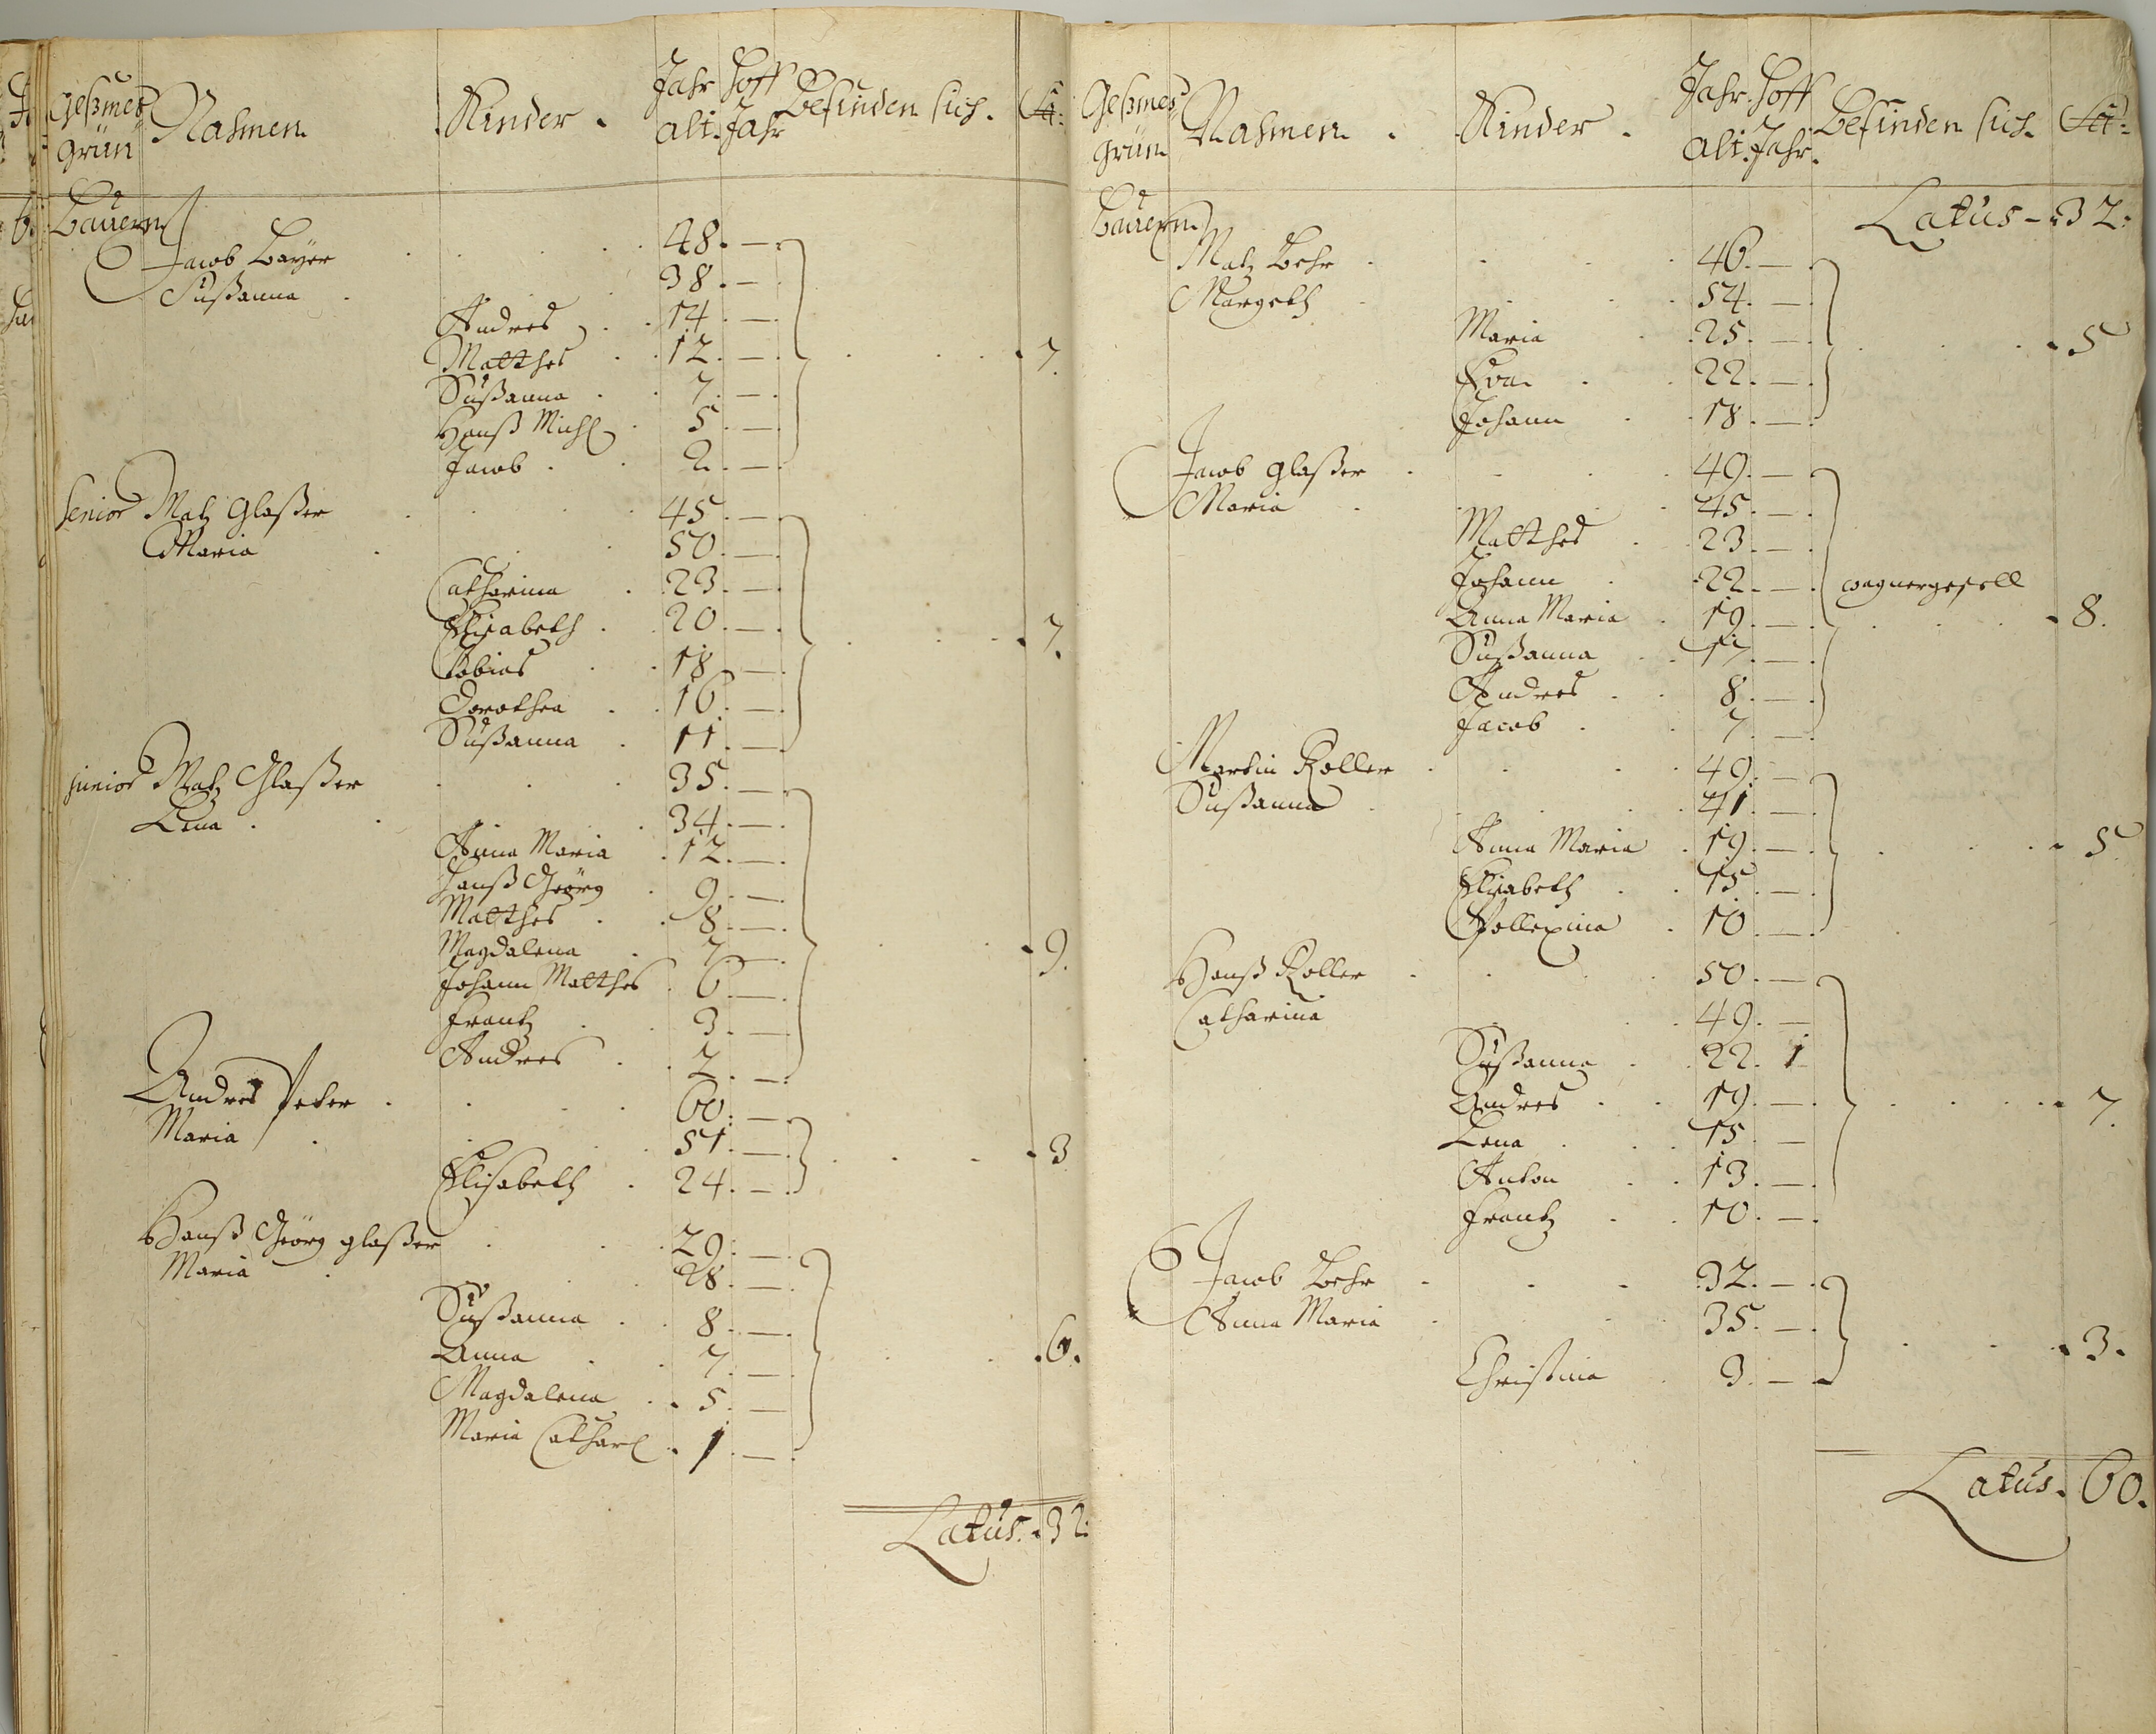 Geßmes
grün
Nahmen
Kinder.
Jahr
alt.
Hoff
Jahr
Befinden sich.
St:
Bauern
Jacob Bayer 48. —
Sußanna 38. —
Andres 14. —
Matthes 12. — 7.
Sußanna 7. —
Hanß Michl 5. —
Jacob 2. —
Senior Matz Glaßer 45. —
Maria 50. —
Catharina 23. —
Elisabeth 20. — 7.
Tobias 18. —
Dorothea 16. —
Sußanna 11. —
junior Matz Glaßer 35. —
Lena 34. —
Anna Maria 12. —
Hanß Geörg 9. —
Matthes 8. —
Magdalena 7. — 9.
Johann Matthes 6. —
Frantz 3. —
Andres 2. —
Andres Peter 60. —
Maria 51. — 3
Elisabeth 24. —
Hanß Geörg glaßer 29. —
Maria 28. —
Sußanna 8. —
Anna 7. — 6.
Magdalena 5. —
Maria Catharl 1. —
Latus. 32:
Geßmes
grün
Nahmen.
Kinder.
Jahr
alt.
Hoff
Jahr.
Befinden sich.
St:
Bauern.
Latus - 32:
Matz Behr 46. —
Margeth 54. —
Maria 25. — 5
Eva 22. —
Johann 18. —
Jacob glaßer 49. —
Maria 45. —
Matthes 23. —
Johann 22. — wagnergesell
Anna Maria 19. — 8.
Sußanna 17. —
Andres 8. —
Jacob 7. —
Martin Roller 49. —
Sußanna 41. —
Anna Maria 19. — 5.
Elisabeth 15. —
Apollexina 10. —
Hanß Roller 50. —
Catharina 49. —
Sußanna 22. 1
Andres 19. — 7.
Lena 15. —
Anton 13. —
Frantz 10. —
Jacob Behr 32. —
Anna Maria 35. — 3.
Christina 3. —
Latus. 60.